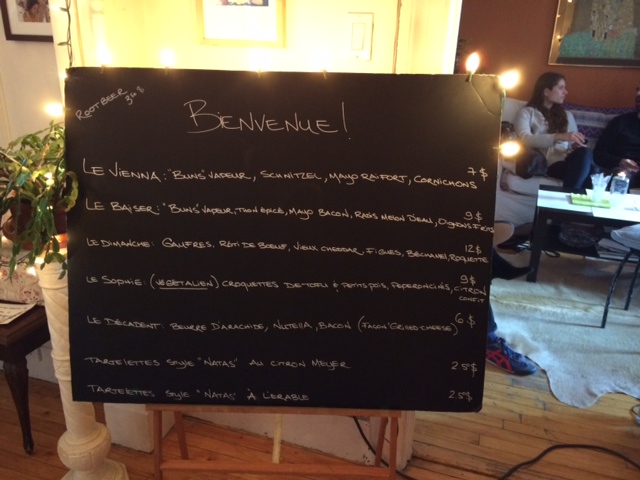 ROOTBEER
3.50$
BIENVENUE!
LE VIENNA: "BUNS" VAPEUR, SCHNITZEL, MAYO RAIFORT, CORNICHONS 7$
LE BAISER: "BUNS" VAPEUR, THON ÉPICÉ, MAYO BACON, RADIS MELON D'EAU, OIGNONS FRITS 9$
LE DIMANCHE: GAUFRES, RÔTI DE BOEUF, VIEUX CHEDDAR, FIGUES, BÉCHAMEL, ROQUETTE 12$
LE SOPHIE: (VÉGÉTALIEN) CROQUETTES DE TOFU & PETITS POIS, PEPERONCINIS, CITRON CONFIT 9$
LE DÉCADENT: BEURRE D'ARACHIDE, NUTELLA, BACON (FAÇON "GRILLED-CHEESE") 6$
TARTELETTES STYLE "NATAS" AU CITRON MEYER 2.5$
TARTELETTES STYLE "NATAS" À L'ÉRABLE 2.5$